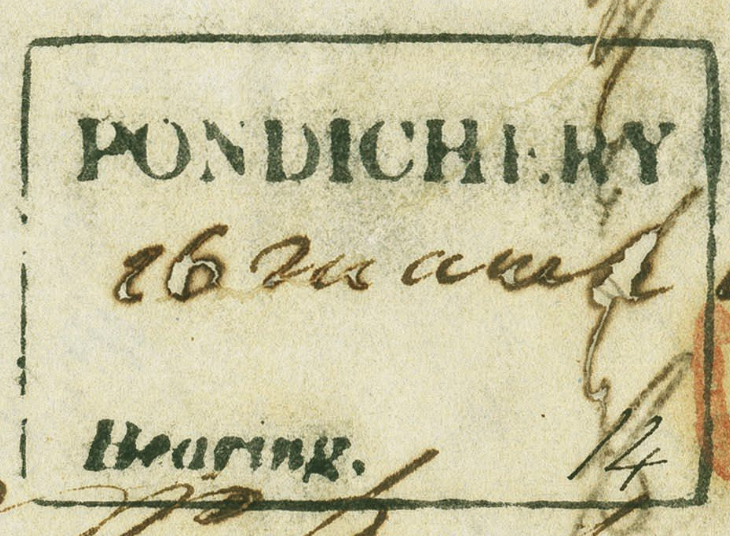 PONDICHERRY
26 March
Bearing.
14